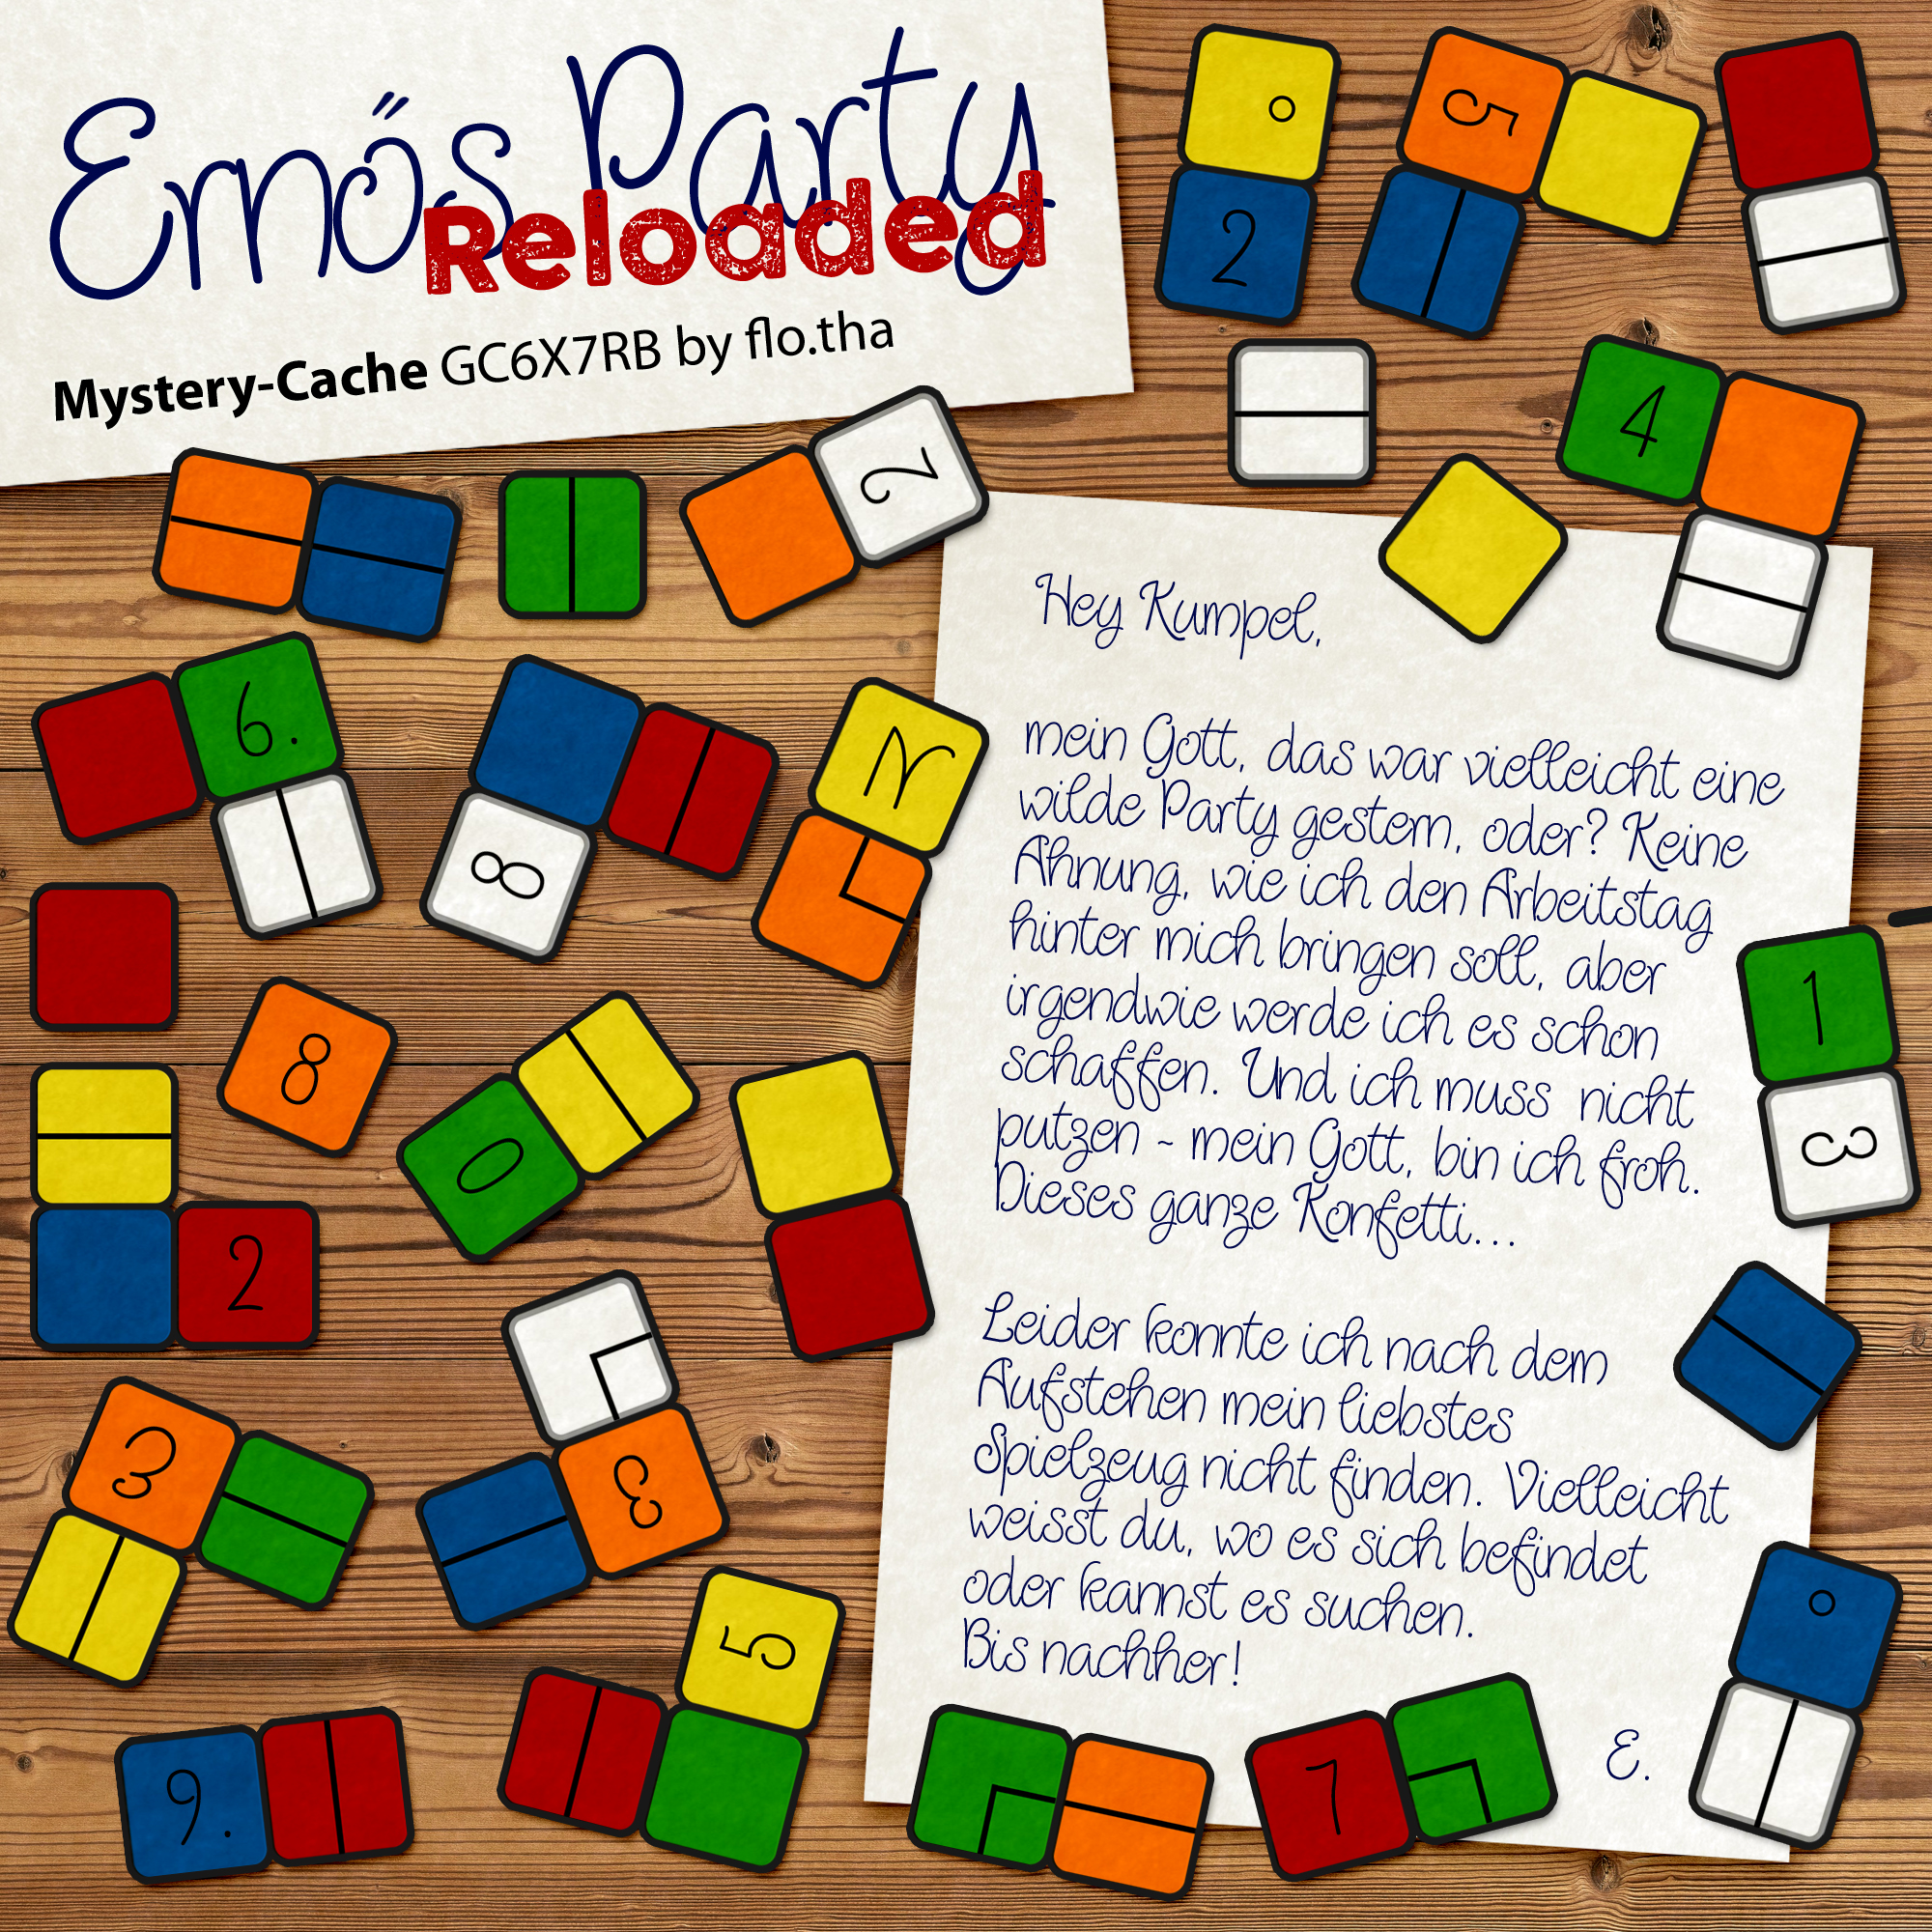 Ernős Party
Reloaded
Mystery-Cache GC6X7RB by flo.tha
°
2
5
4
2
6.
8
N
8
0
2
3
3
5
9.
1
3
°
7
Hey Kumpel,
mein Gott, das war vielleicht eine
wilde Party gestern, oder? Keine
Ahnung, wie ich den Arbeitstag
hinter mich bringen soll, aber
irgendwie werde ich es schon
schaffen. Und ich muss nicht
putzen ~ mein Gott, bin ich froh.
Dieses ganze Konfetti...
Leider konnte ich nach dem
Aufstehen mein liebstes
Spielzeug nicht finden. Vielleicht
weisst du, wo es sich befindet
oder kannst es suchen.
Bis nachher!
E.